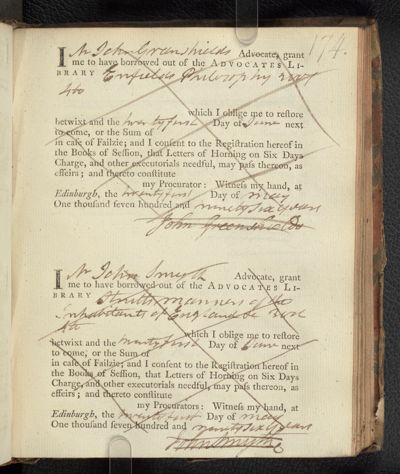 174.
I Mr John Greenshields Advocate, grant
me to have borrowed out of the ADVOCATES LI-
BRARY Enfields Philosophy 2 vols
4to
which I oblige me to restore
betwixt and the twenty first Day of June next
to come, or the Sum of
in case of Failzie; and I consent to the Registration hereof in
the Books of Session, that Letters of Horning on Six Days
Charge, and other executorials needful, may pass thereon, as
effeirs; and thereto constitute
my Procurator: Witness my hand, at
Edinburgh, the twenty first Day of May
One thousand seven hundred and ninety six years
John Greenshields
I Mr John Smyth Advocate, grant
me to have borrowed out of the ADVOCATES LI-
BRARY Strutts manners of the
Inhabitants of England &c
4to
which I oblige me to restore
betwixt and the twenty first Day of June next
to come, or the Sum of
in case of Failzie; and I consent to the Registration hereof in
the Books of Session, that Letters of Horning on Six Days
Charge, and other executorials needful, may pass thereon, as
effeirs; and thereto constitute
my Procurators: Witness my hand, at
Edinburgh, the twenty first Day of May
One thousand seven hundred and ninety six years
John Smyth